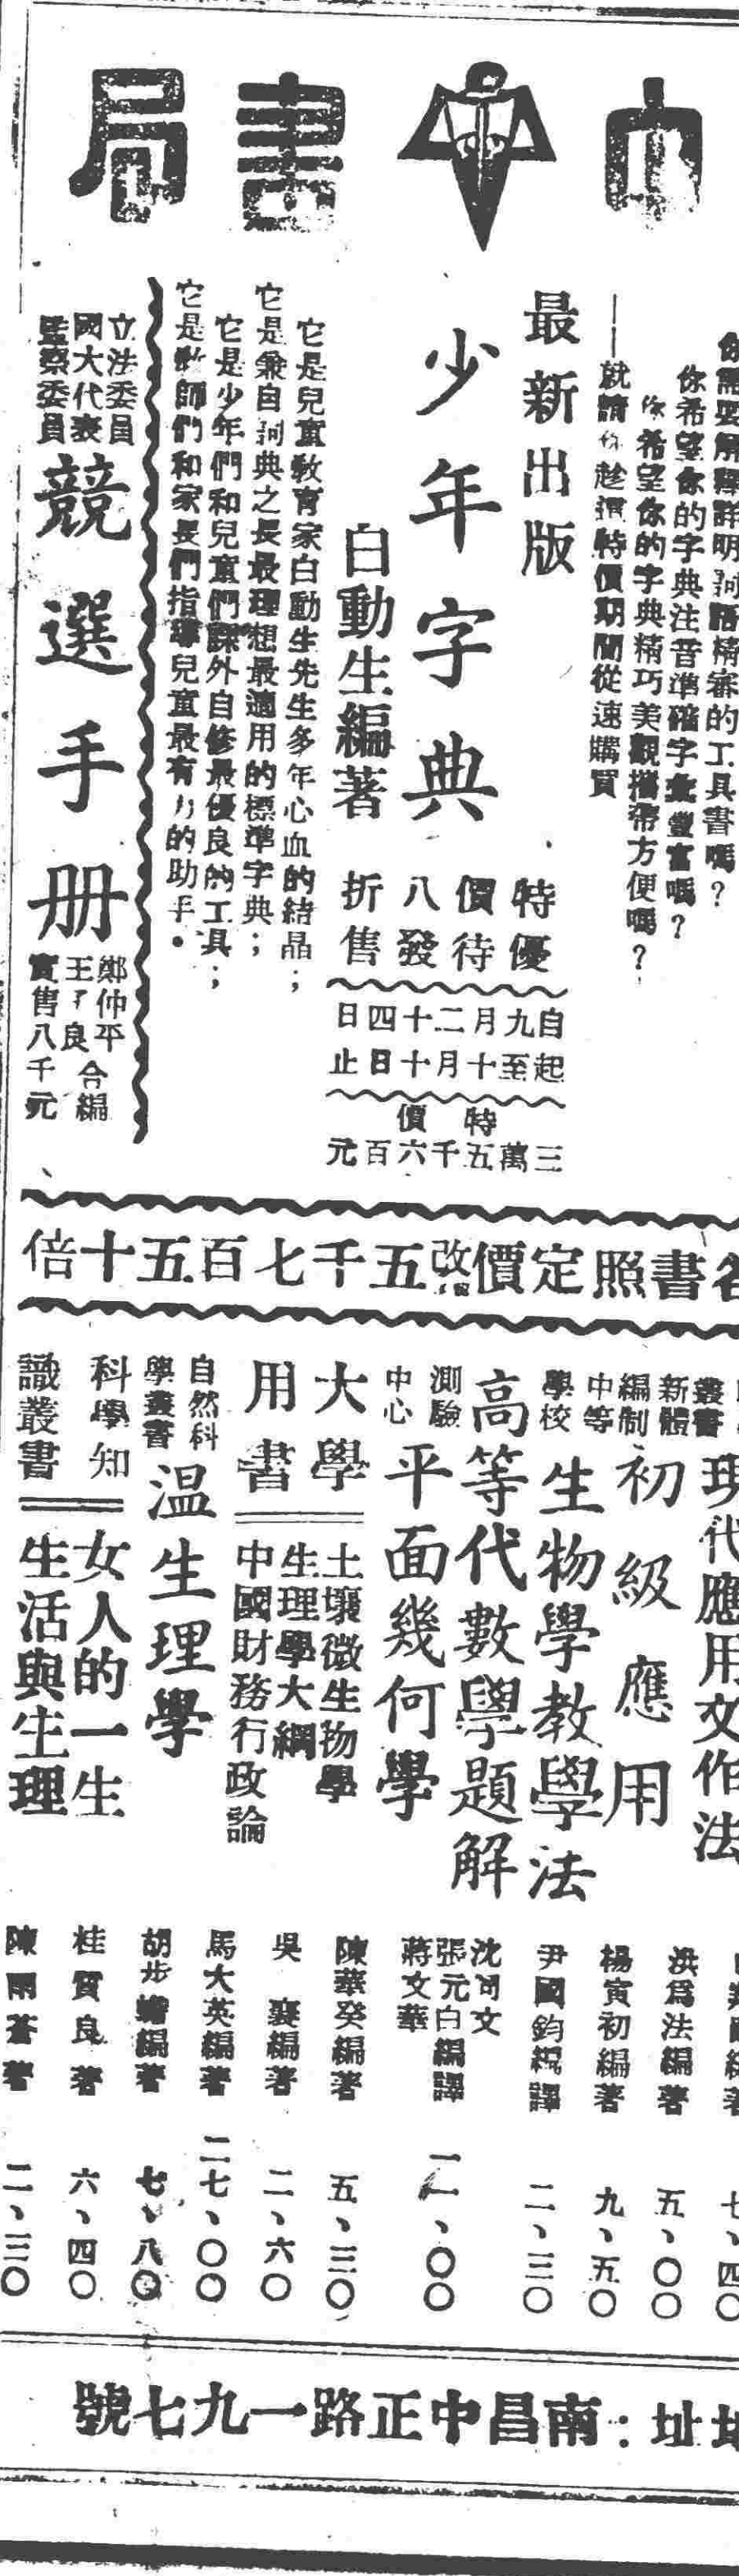 書局
你需要解釋詳明詞語精審的工具書嗎？
你希望你的字典注音準確字彙豐富嗎？
你希望你的字典精巧美觀攜帶方便嗎？
——就請你趁這特價期間從速購買
最新出版
少年字典
白動生編著
特優
價待
八發
折售
自九月二十四日
起至十月十日止
特價
三萬五千六百元
它是兒童教育家白動生先生多年心血的結晶；
它是兼自詞典之長最理想最適用的標準字典；
它是少年們和兒童們課外自修最優良的工具；
它是教師們和家長們指導兒童最有力的助手。
立法委員
國大代表
監察委員
競選手册
鄭仲平
王了良
合編
實售八千元
各書照定價改五千七百五十倍
叢書
現代應用文作法
洪爲法編著
五、〇〇
新體
編制
初級應用
楊寅初編著
九、五〇
中等
學校
生物學教學法
尹國鈞編譯
二、三〇
高等代數學題解
沈同文
張元白
蔣文華
編譯
一一、〇〇
測驗
中心
平面幾何學
陳華癸編著
五、三〇
大學
用書
土壤微生物學
生理學大綱
吳襄編著
二、六〇
中國財務行政論
馬大英編著
二七、〇〇
自然科
學叢書
溫生理學
胡步蟾編著
七、八〇
科學知
識叢書
女人的一生
桂質良著
六、四〇
生活與生理
陳雨蒼著
二、三〇
七、四〇
地址：南昌中正路一九七號